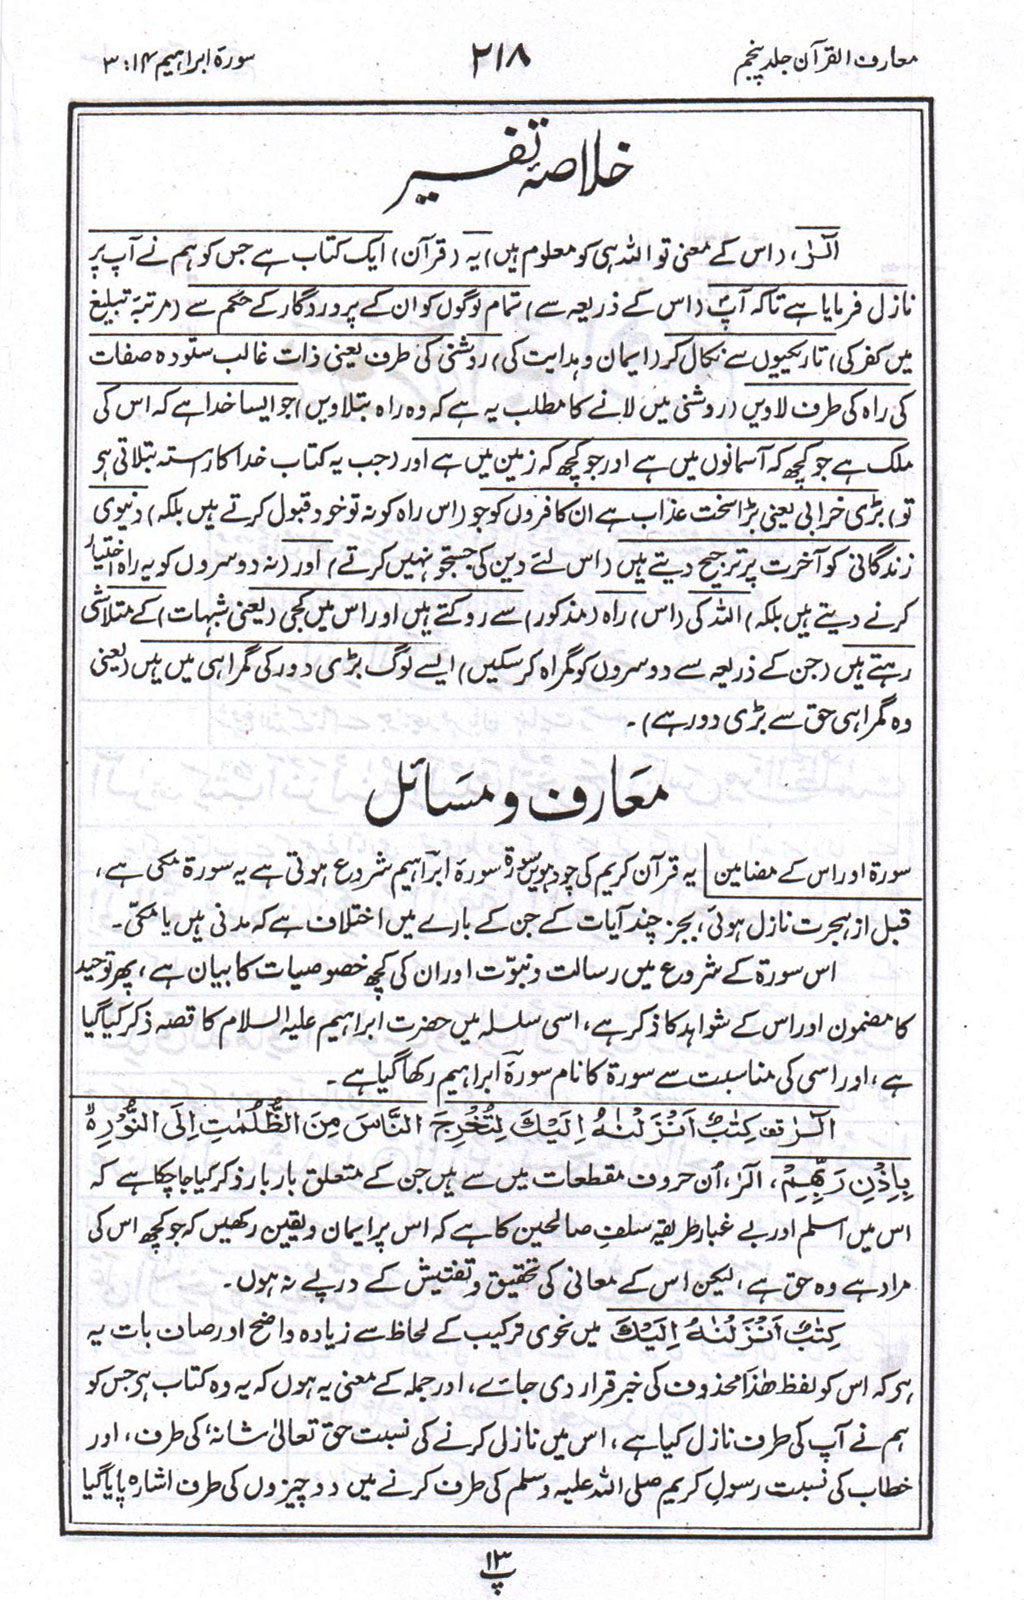 معارف القرآن جلد پنجم
۲۱۸
سورۃ ابراہیم ۱۴ : ۳
خلاصۂ تفسیر
الٓرٰ، (اس کے معنی تو اللہ ہی کو معلوم ہیں) یہ (قرآن) ایک کتاب ہے جس کو ہم نے آپ پر
نازل فرمایا ہے تاکہ آپؐ (اس کے ذریعہ سے) تمام لوگوں کو ان کے پروردگار کے حکم سے (مرتبۂ تبلیغ
میں کفر کی) تاریکیوں سے نکال کر (ایمان و ہدایت کی) روشنی کی طرف یعنی ذات غالب ستودہ صفات
کی راہ کی طرف لاویں (روشنی میں لانے کا مطلب یہ ہے کہ وہ راہ بتلاویں) جو ایسا خدا ہے کہ اس کی
ملک ہے جو کچھ کہ آسمانوں میں ہے اور جو کچھ کہ زمین میں ہے اور (جب یہ کتاب خدا کا رستہ بتلاتی ہی
تو) بڑی خرابی یعنی بڑا سخت عذاب ہے ان کافروں کو جو (اس راہ کو نہ تو خود قبول کرتے ہیں بلکہ) دنیوی
زندگانی کو آخرت پر ترجیح دیتے ہیں (اس لئے دین کی جستجو نہیں کرتے) اور (نہ دوسروں کو یہ راہ اختیار
کرنے دیتے ہیں بلکہ) اللہ کی (اس) راہ (مذکور) سے روکتے ہیں اور اس میں کجی (یعنی شبہات) کے متلاشی
رہتے ہیں (جن کے ذریعہ سے دوسروں کو گمراہ کر سکیں) ایسے لوگ بڑی دور کی گمراہی میں ہیں (یعنی
وہ گمراہی حق سے بڑی دور ہے)۔
معارف و مسائل
سورۃ اور اس کے مضامین یہ قرآن کریم کی چودہویں سورۃ سورۂ ابراہیم شروع ہوتی ہے یہ سورۃ مکی ہے،
قبل از ہجرت نازل ہوئی، بجز چند آیات کے جن کے بارے میں اختلاف ہے کہ مدنی ہیں یا مکیّ۔
اس سورۃ کے شروع میں رسالت و نبوّت اور ان کی کچھ خصوصیات کا بیان ہے، پھر توحید
کا مضمون اور اس کے شواہد کا ذکر ہے، اسی سلسلہ میں حضرت ابراہیم علیہ السلام کا قصہ ذکر کیا گیا
ہے، اور اسی کی مناسبت سے سورۃ کا نام سورۂ ابراہیم رکھا گیا ہے۔
الٓرٰ قف كِتٰبٌ اَنْزَلْنٰهُ اِلَيْكَ لِتُخْرِجَ النَّاسَ مِنَ الظُّلُمٰتِ اِلَى النُّوْرِ
بِاِذْنِ رَبِّهِمْ، الٓرٰ، اُن حروف مقطعات میں سے ہیں جن کے متعلق بار بار ذکر کیا جا چکا ہے کہ
اس میں اسلم اور بے غبار طریقہ سلفِ صالحین کا ہے کہ اس پر ایمان و یقین رکھیں کہ جو کچھ اس کی
مراد ہے وہ حق ہے، لیکن اس کے معانی کی تحقیق و تفتیش کے درپے نہ ہوں۔
كِتٰبٌ اَنْزَلْنٰهُ اِلَيْكَ میں نحوی ترکیب کے لحاظ سے زیادہ واضح اور صاف بات یہ
ہی کہ اس کو لفظ ھٰذَا محذوف کی خبر قرار دی جائے، اور جملہ کے معنی یہ ہوں کہ یہ وہ کتاب ہی جس کو
ہم نے آپ کی طرف نازل کیا ہے، اس میں نازل کرنے کی نسبت حق تعالیٰ شانہٗ کی طرف، اور
خطاب کی نسبت رسولِ کریم صلی اللہ علیہ وسلم کی طرف کرنے میں دو چیزوں کی طرف اشارہ پایا گیا
۱۳
پ